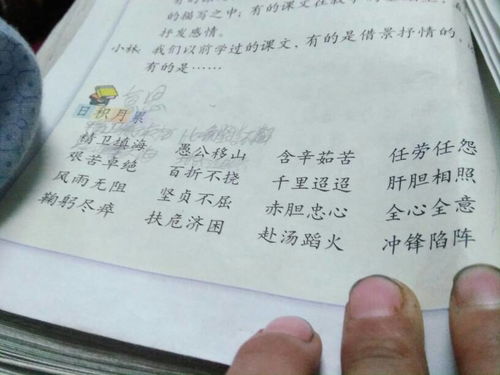 的描写之中；有的课文在
抒发感情。
小林 我们以前学过的课文，有的是借景抒情的，
有的是……
日积月累
精卫填海 愚公移山 含辛茹苦 任劳任怨
艰苦卓绝 百折不挠 千里迢迢 肝胆相照
风雨无阻 坚贞不屈 赤胆忠心 全心全意
鞠躬尽瘁 扶危济困 赴汤蹈火 冲锋陷阵